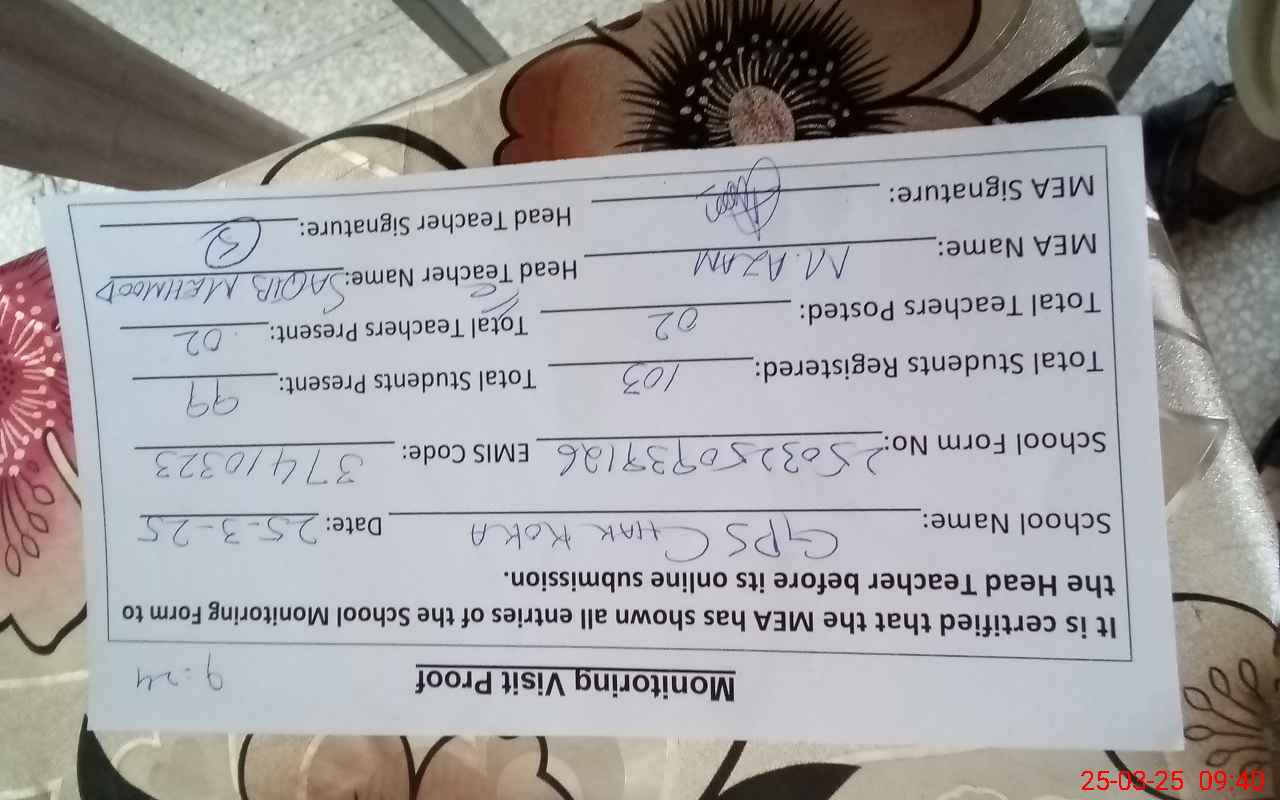 Monitoring Visit Proof 9:24
It is certified that the MEA has shown all entries of the School Monitoring Form to
the Head Teacher before its online submission.
School Name: GPS CHAK KOKA Date: 25-3-25
School Form No: 250325093126 EMIS Code: 37410323
Total Students Registered: 103 Total Students Present: 99
Total Teachers Posted: 02 Total Teachers Present: 02
MEA Name: M. AZAM Head Teacher Name: SAQIB MEHMOOD
MEA Signature: Head Teacher Signature:
25-03-25 09:40